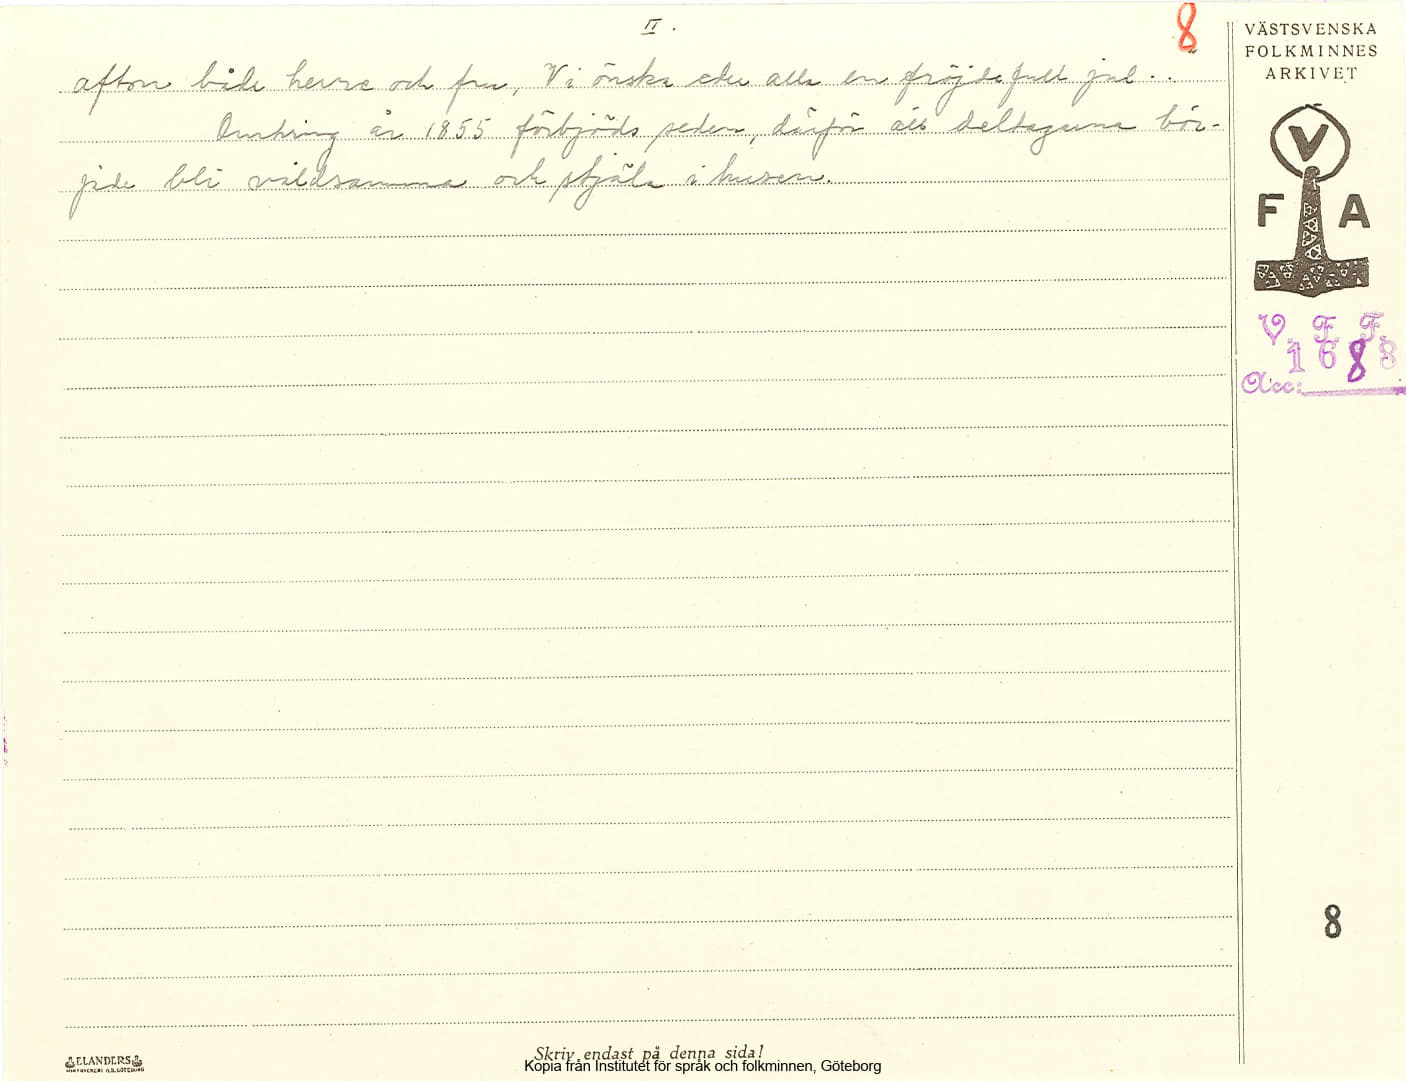 II.
8
afton både herre och fru, Vi önska eder alla en fröjdefull jul . . "
Omkring år 1855 förbjöds seden, därför att deltagarna bör-
jade bli våldsamma och stjäla i husen.
VÄSTSVENSKA
FOLKMINNES
ARKIVET
V
F A
V. F. F.
1688
Acc:
8
ELANDERS
Skriv endast på denna sida!
Kopia från Institutet för språk och folkminnen, Göteborg